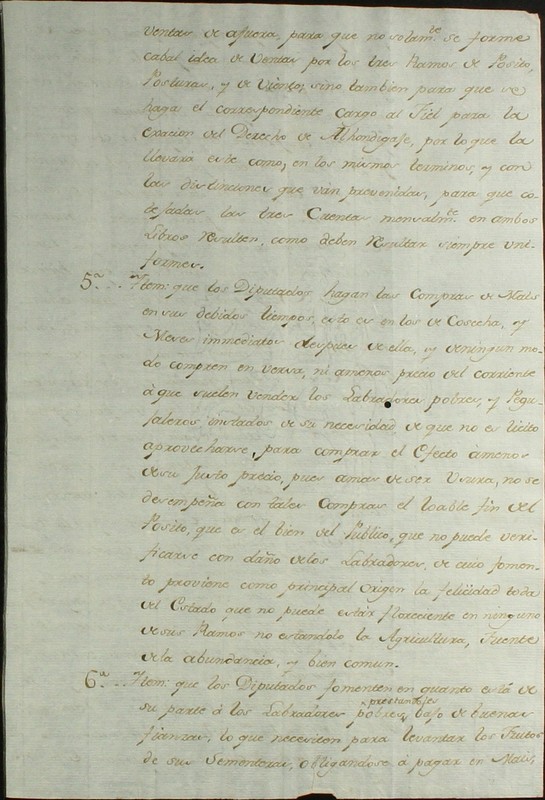 ventas de afuera, para que no solam.te se forme
cabal idea de Ventas por los tres Ramos de Posito,
Posturas, y de Viento, sino tambien para que se
haga el correspondiente Cargo al Fiel para la
exaccion del Derecho de Alhondigaje, por lo que la
llevará este como, en los mismos terminos, y con
las distinciones que ván prevenidas, para que co-
tejadas las tres Cuentas mensualm.te en ambos
Libros resulten, como deben resultar siempre uni-
formes.
5.a ... Item: que los Diputados hagan las Compras de Mais
en sus debidos tiempos, esto es en los de Cosecha, y
Meses immediatos despues de ella, y de ningun mo-
do compren en yerva, ni a menos precio del corriente
à que suelen vender los Labradores pobres, y Pegu-
jaleros instados de su necesidad de que no es licito
aprovecharse, para comprar el Efecto à menos
de su justo precio, pues amas de ser Usura, no se
desempeña con tales Compras el loable fin del
Posito, que es el bien del Publico, que no puede veri-
ficarse con daño de los Labradores, de cuio fomen-
to proviene como principal origen la felicidad toda
del Estado que no puede estár floreciente en ninguno
de sus Ramos no estandolo la Agricultura, Fuente
de la abundancia, y bien comun.
6.a ... Item: que los Diputados fomenten en quanto está de
su parte à los Labradores pobres, prestandoles bajo de buenas
fianzas, lo que necesiten para levantar los Frutos
de sus Sementeras, obligandose à pagar en Mais,